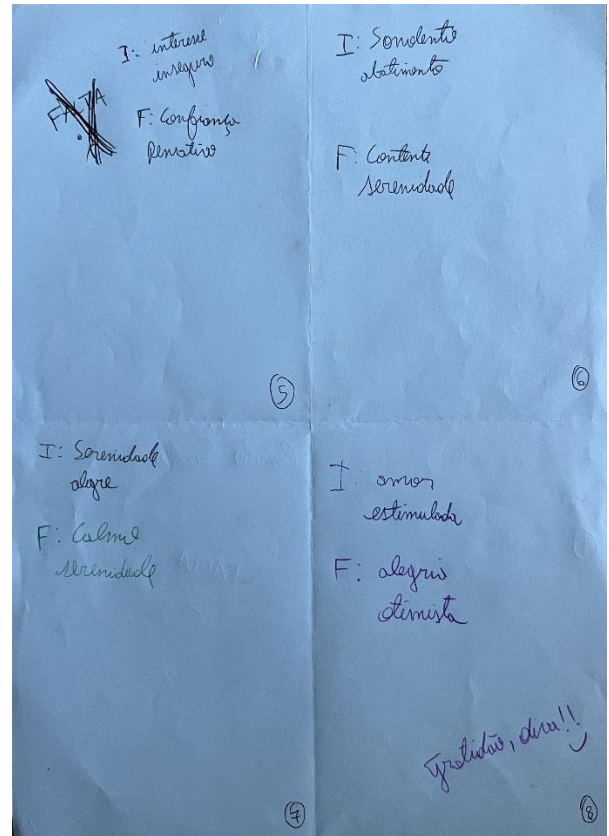 I: interesse
inseguro
FALTA
F: Confiança
Pensativo
5
I: Sonolento
abatimento
F: Contente
serenidade
6
I: Serenidade
alegre
F: Calma
serenidade
7
I: amor
estimulada
F: alegria
otimista
Gratidão, diva!!
8